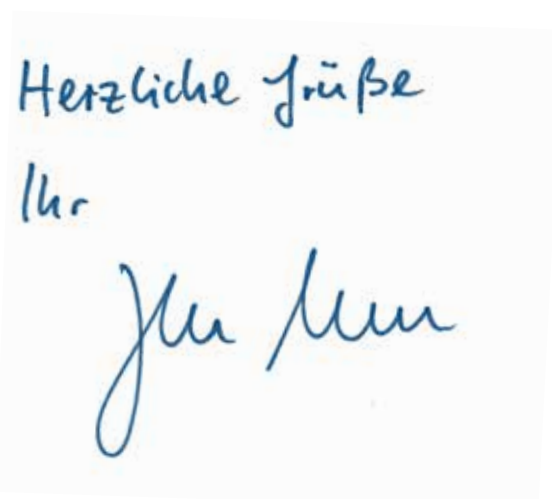 Herzliche Grüße
Ihr